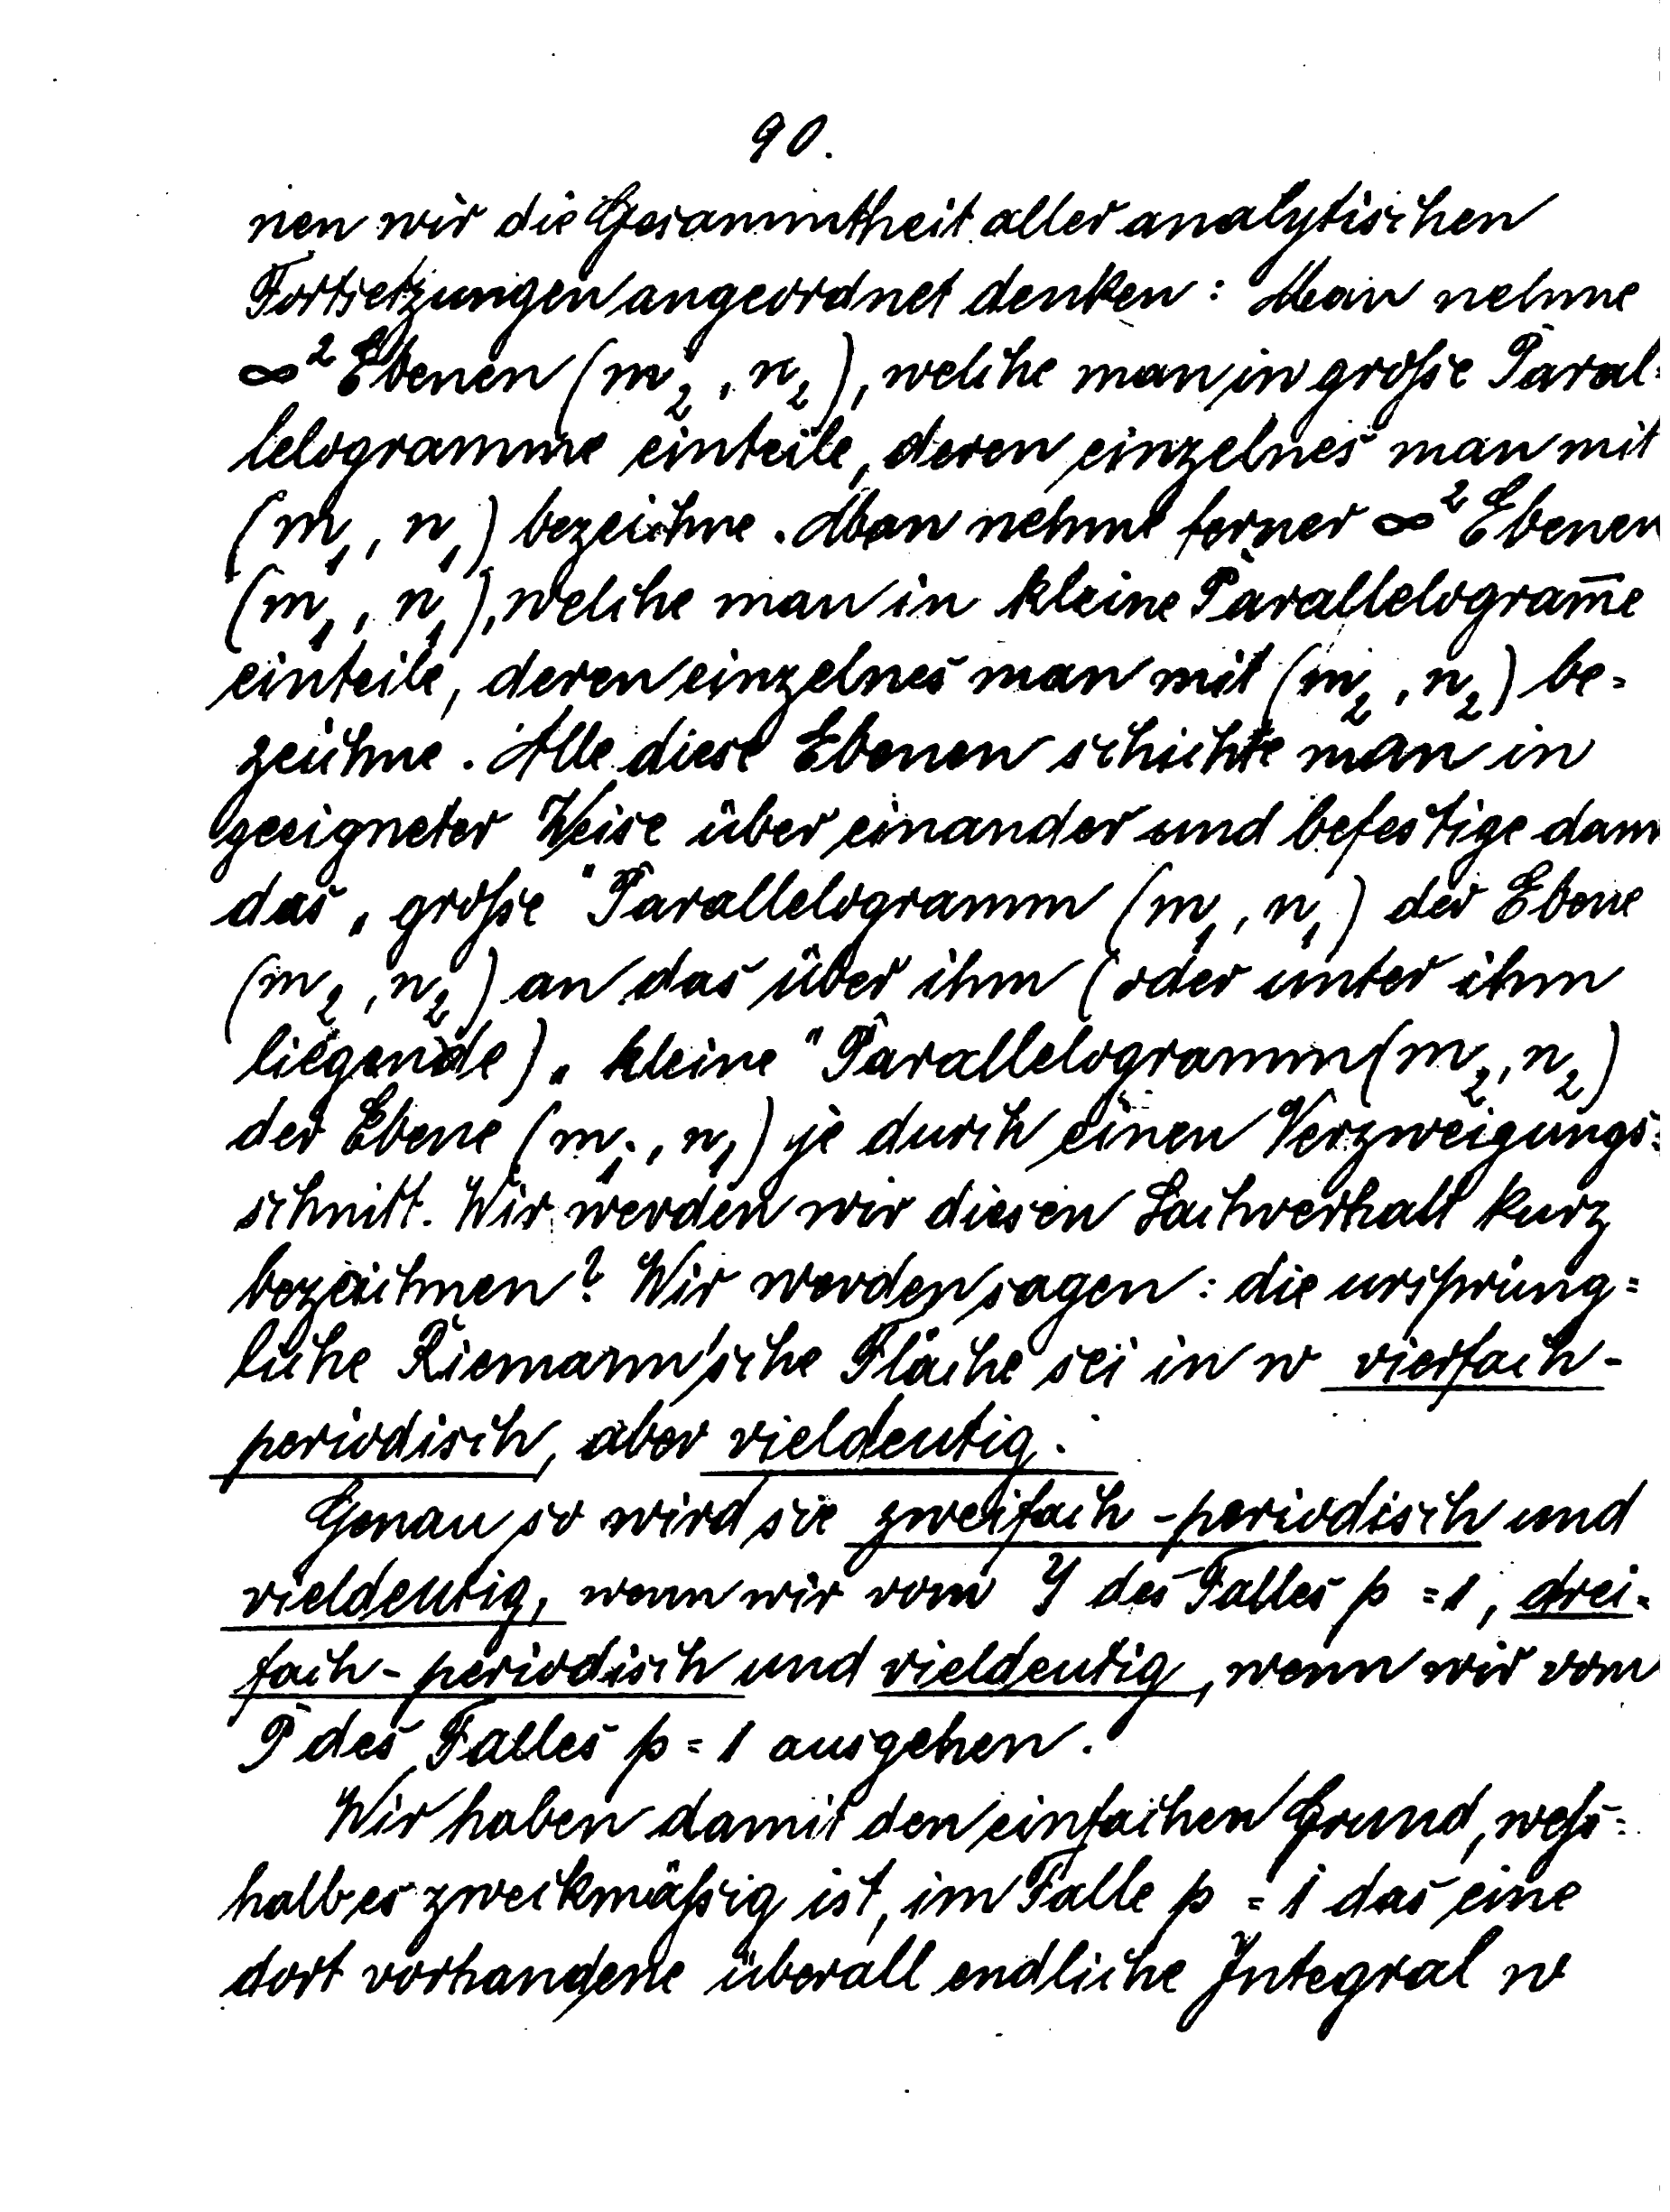 90.
nen wir die Gesammtheit aller analytischen
Fortsetzungen angeordnet denken: Man nehme
∞² Ebenen (m₂, n₂), welche man in große Paral-
lelogramme einteile, deren einzelnes man mit
(m₁, n₁) bezeichne. Man nehme ferner ∞² Ebenen
(m₁, n₁), welche man in kleine Parallelogram̅e
einteile, deren einzelnes man mit (m₂, n₂) be-
zeichne. Alle diese Ebenen schichte man in
geeigneter Weise über einander und befestige dann
das „große" Parallelogramm (m₁, n₁) der Ebene
(m₂, n₂) an das über ihm (oder unter ihm
liegende) „kleine" Parallelogramm (m₂, n₂)
der Ebene (m₁, n₁) je durch einen Verzweigungs-
schnitt. Wir werden wir diesen Sachverhalt kurz
bezeichnen? Wir werden sagen: die ursprüng-
liche Riemann'sche Fläche sei in w vierfach-
periodisch, aber vieldeutig.
Genau so wird sie zweifach-periodisch und
vieldeutig, wenn wir vom Y des Falles p = 1, drei-
fach-periodisch und vieldeutig, wenn wir vom
P des Falles p = 1 ausgehen.
Wir haben damit den einfachen Grund, weß-
halb es zweckmäßig ist, im Falle p = 1 das eine
dort vorhandene überall endliche Integral w